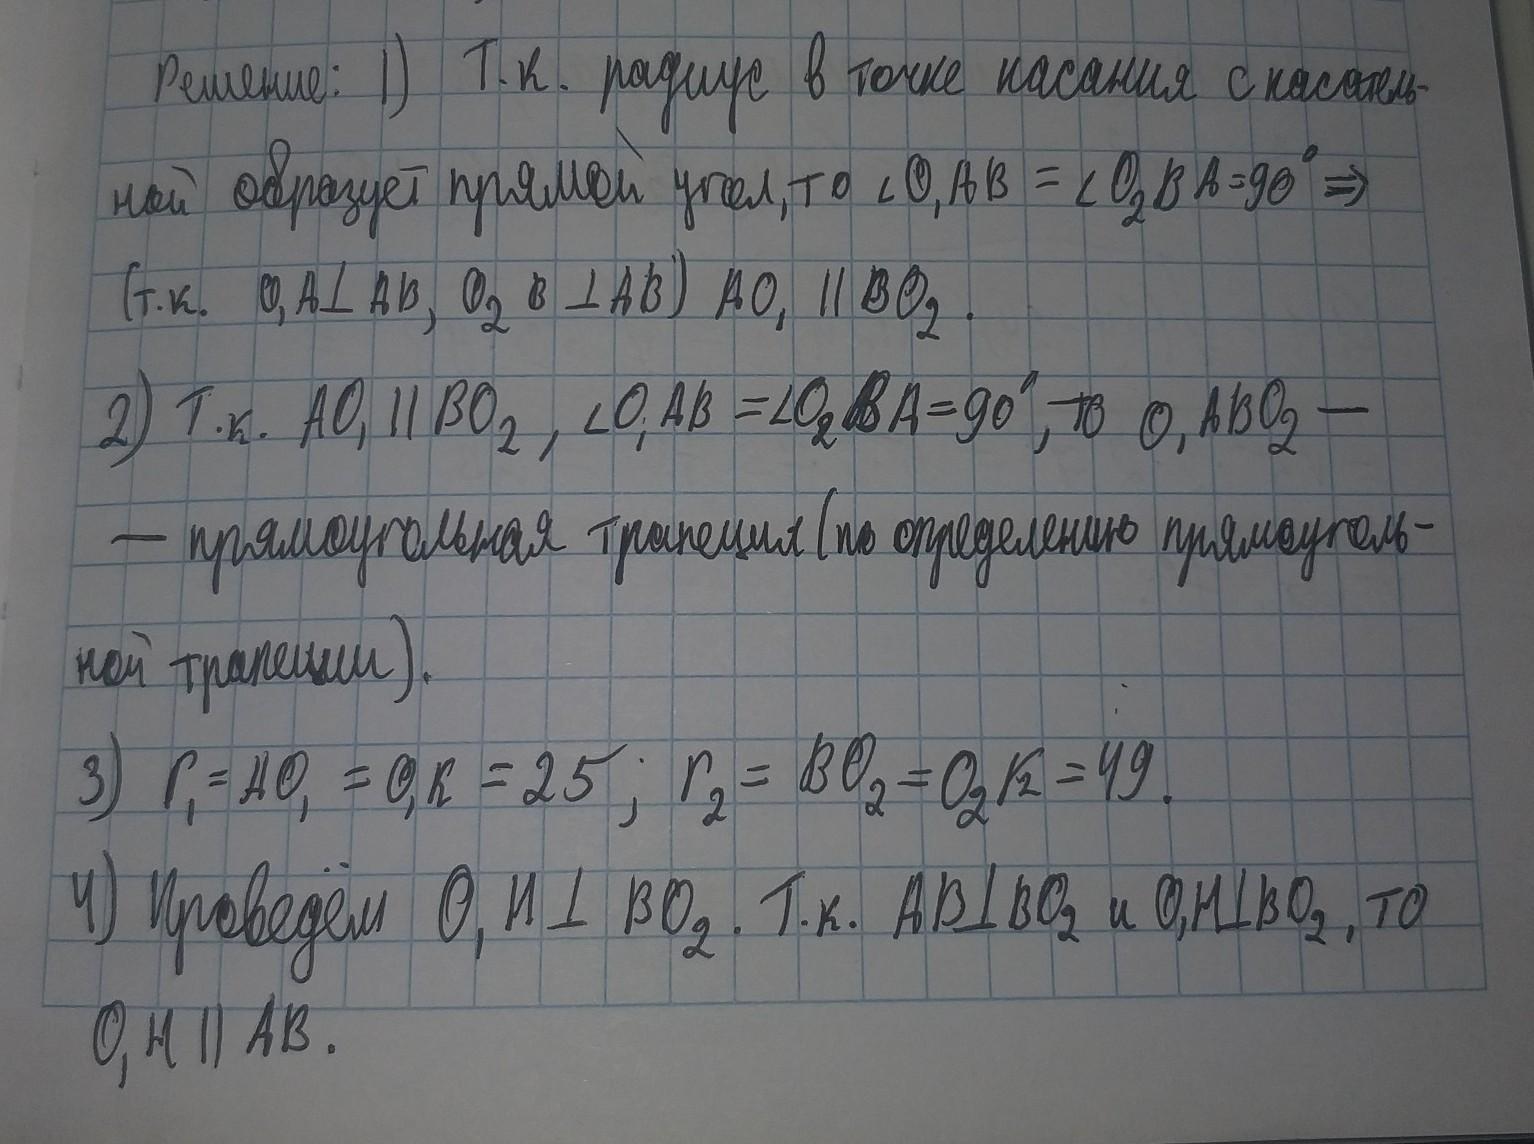 Решение: 1) Т.к. радиус в точке касания с касатель-
ной образует прямой угол, то ∠O₁AB = ∠O₂BA = 90° ⇒
(т.к. O₁A⊥AB, O₂B⊥AB) AO₁ || BO₂.
2) Т.к. AO₁ || BO₂, ∠O₁AB = ∠O₂BA = 90°, то O₁ABO₂ —
— прямоугольная трапеция (по определению прямоуголь-
ной трапеции).
3) r₁ = AO₁ = O₁K = 25; r₂ = BO₂ = O₂K = 49.
4) Проведём O₁H ⊥ BO₂. Т.к. AB⊥BO₂ и O₁H⊥BO₂, то
O₁H || AB.